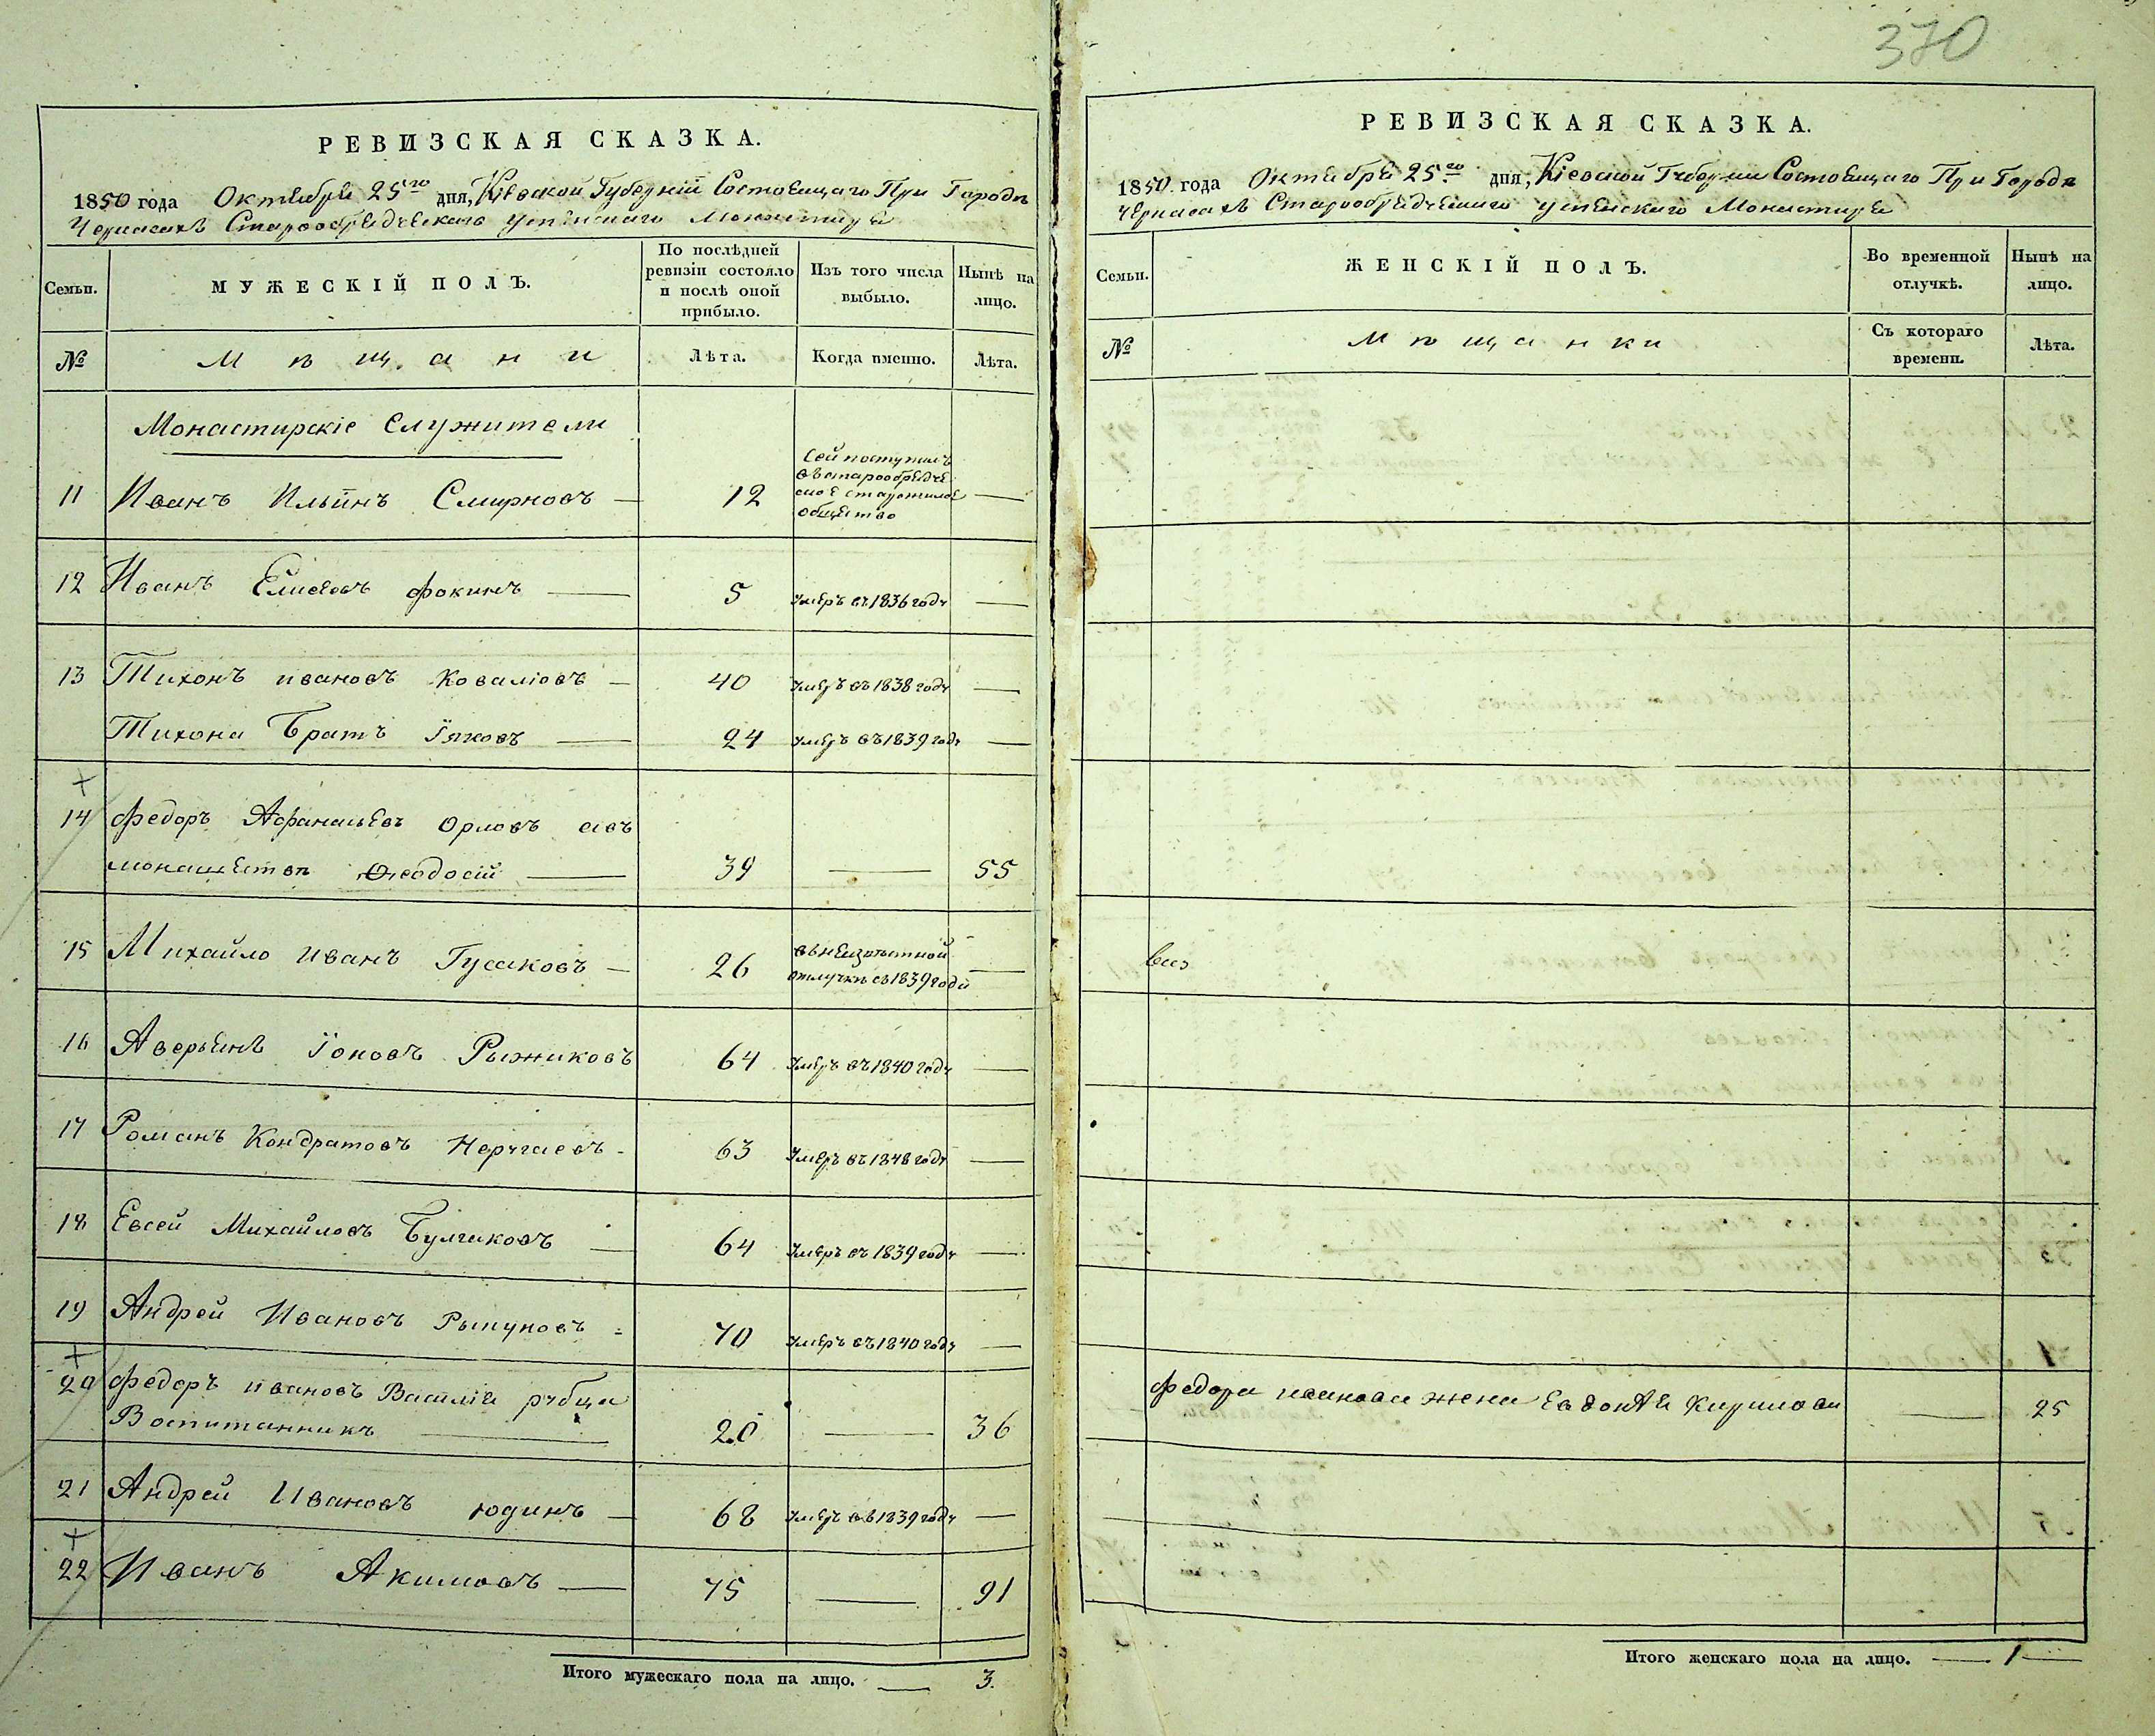 370
РЕВИЗСКАЯ СКАЗКА.
1850 года Октября 25го дня, Кіевской Губерніи Состоящаго При Городѣ
Черкасахъ Старообрядческаго Успѣнскаго Монастиря
Семьи.
МУЖЕСКІЙ ПОЛЪ.
По послѣдней
ревизіи состояло
и послѣ оной
прибыло.
Изъ того числа
выбыло.
Нынѣ на
лицо.
№
Мѣщани
Лѣта.
Когда именно.
Лѣта.
Монастирскіе Служители
Сей поступилъ
въ старообрядче
ское старожилое
общество
11 Иванъ Ильинъ Смирновъ — 12 —
12 Иванъ Елисеевъ Фокинъ — 5 Умеръ въ 1836 году —
13 Тихонъ ивановъ Ковалiовъ — 40 Умеръ въ 1838 году —
Тихона Братъ Їяковъ — 24 Умеръ въ 1839 году —
14 Федоръ Афанасьевъ Орловъ авъ
монашествѣ Ѳеодосій — 39 — 55
15 Михайло Иванъ Гусаковъ — 26 въ неизвѣстной
отлучкѣ съ 1839 года —
16 Аверьянъ Їоновъ Рыжиковъ 64 Умеръ въ 1840 году —
17 Романъ Кондратовъ 63 Умеръ въ 1848 году —
18 Евсей Михайловъ Булгаковъ — 64 Умеръ въ 1839 году —
19 Андрей Ивановъ 70 Умеръ въ 1840 году —
20 Федоръ ивановъ Василія рубца
Воспитанникъ — 20 — 36
21 Андрей Ивановъ юдинъ — 68 Умеръ въ 1839 году —
22 Иванъ Акимовъ — 75 — 91
Итого мужескаго пола на лицо. — 3.
РЕВИЗСКАЯ СКАЗКА.
1850 года Октября 25го дня, Кіевской Губерніи Состоящаго При Городѣ
Черкасахъ Старообрядческаго Успѣнскаго Монастиря
Семьи.
ЖЕНСКІЙ ПОЛЪ.
Во временной
отлучкѣ.
Нынѣ на
лицо.
№
Мѣщанки
Съ котораго
времени.
Лѣта.
Федора иванова жена Евдокія Кирилова — 25
Итого женскаго пола на лицо. — 1 —